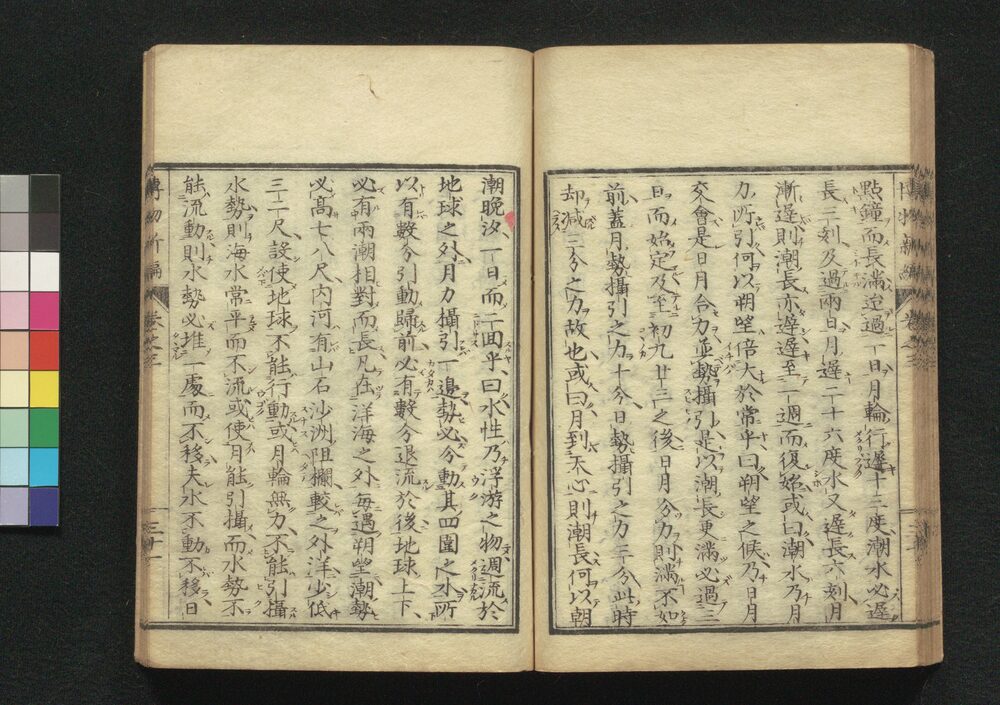 點鐘而長滿迨過一日月輪行遲十三度潮水必遲
長三刻及過兩日月遲二十六度水又遲長六刻月
漸遲則潮長亦遲遲至一週而復始或曰潮水乃月
力所引何以朔望倍大於常乎曰朔望之候乃日月
交會是日月合力並勢攝引是以潮長更滿必過三
日而始定及至初九廿三之後日月分力則滿不如
前蓋月勢攝引之力十分日勢攝引之力三分此時
却減三分之力故也或曰月到天心則潮長何以朝
潮晚汐一日而二回乎曰水性乃浮游之物週流於
地球之外月力攝引一邊勢必分動其四圍之水所
以有數分引動歸前必有數分退流於後地球上下
必有兩潮相對而長凡在洋海之外每遇朔望潮勢
必高七八尺內河有山石沙洲阻攔較之外洋少低
三二尺設使地球不能行動或月輪無力不能引攝
水勢則海水常平而不流或使月能引攝而水勢不
能流動則水勢必堆一處而不移夫水不動不移日
博物新編 卷之三 三十一